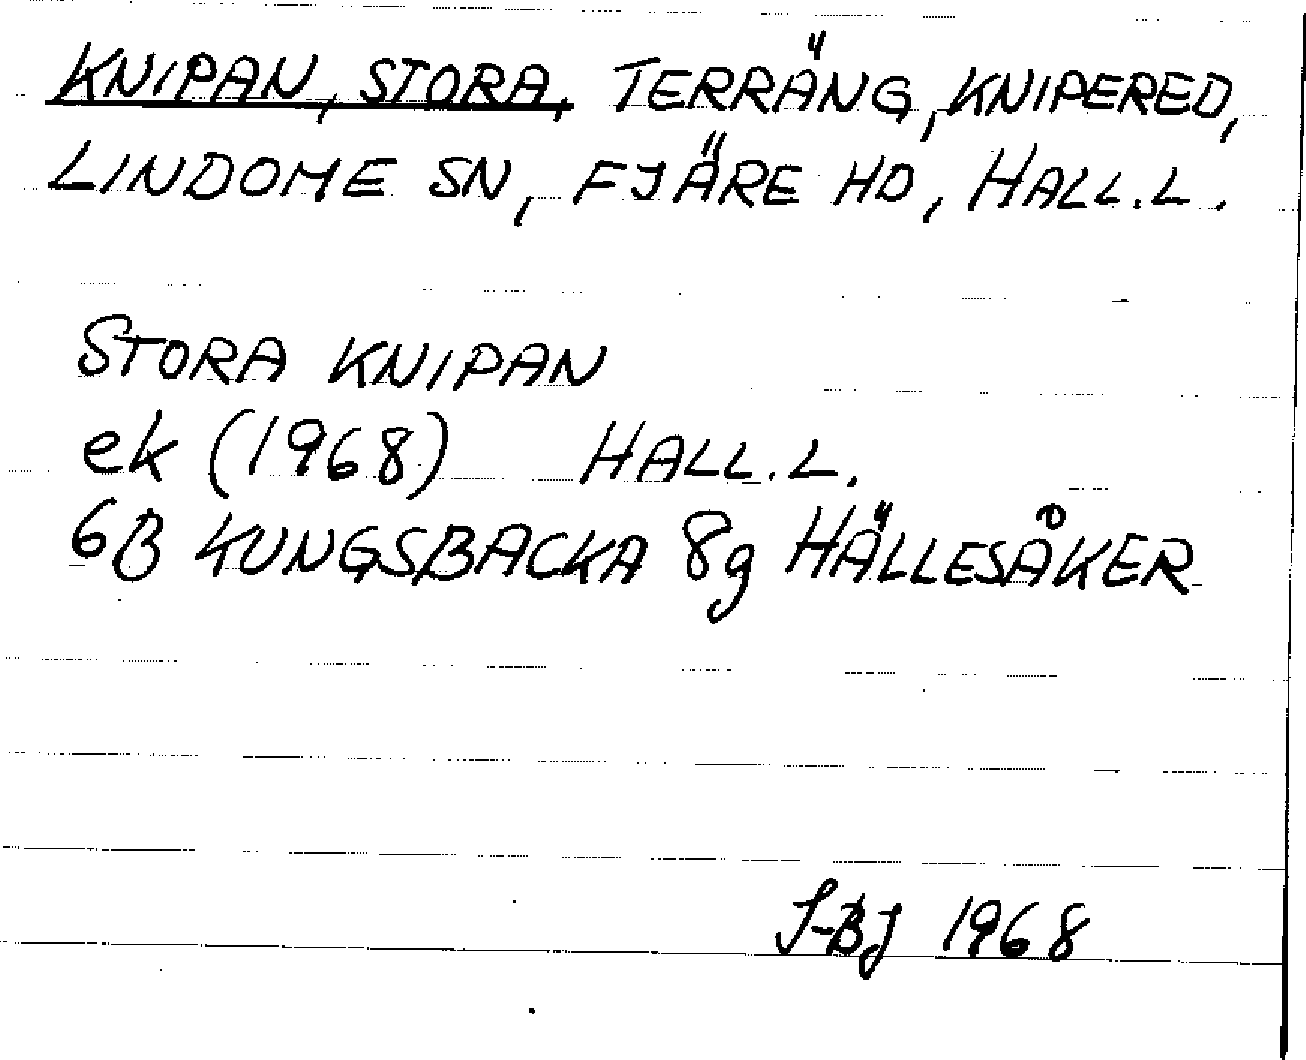 KNIPAN, STORA, TERRÄNG, KNIPERED,
LINDOME SN, FJÄRE HD, HALL.L.
STORA KNIPAN
ek (1968) HALL.L.
6B KUNGSBACKA 8g HÄLLESÅKER
S-BJ 1968